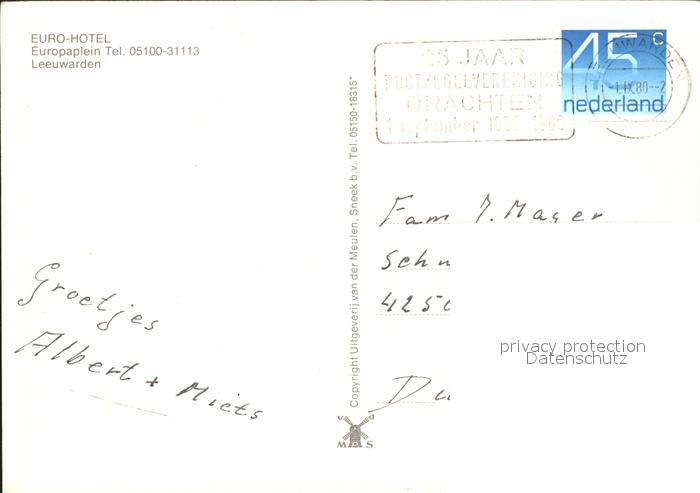 EURO-HOTEL
Europaplein Tel. 05100-31113
Leeuwarden
25 JAAR
POSTZEGELVERENIGING
DRACHTEN
1 september 1955-1980
45 c
nederland
LEEUWARDEN
-1.IX.80--2
Copyright Uitgeverij van der Meulen, Sneek b.v. Tel. 05150-18315*
Fam J. Mayer
Schn
425
privacy protection
Datenschutz
Du
Groetjes
Albert + Miets
v d
MAS